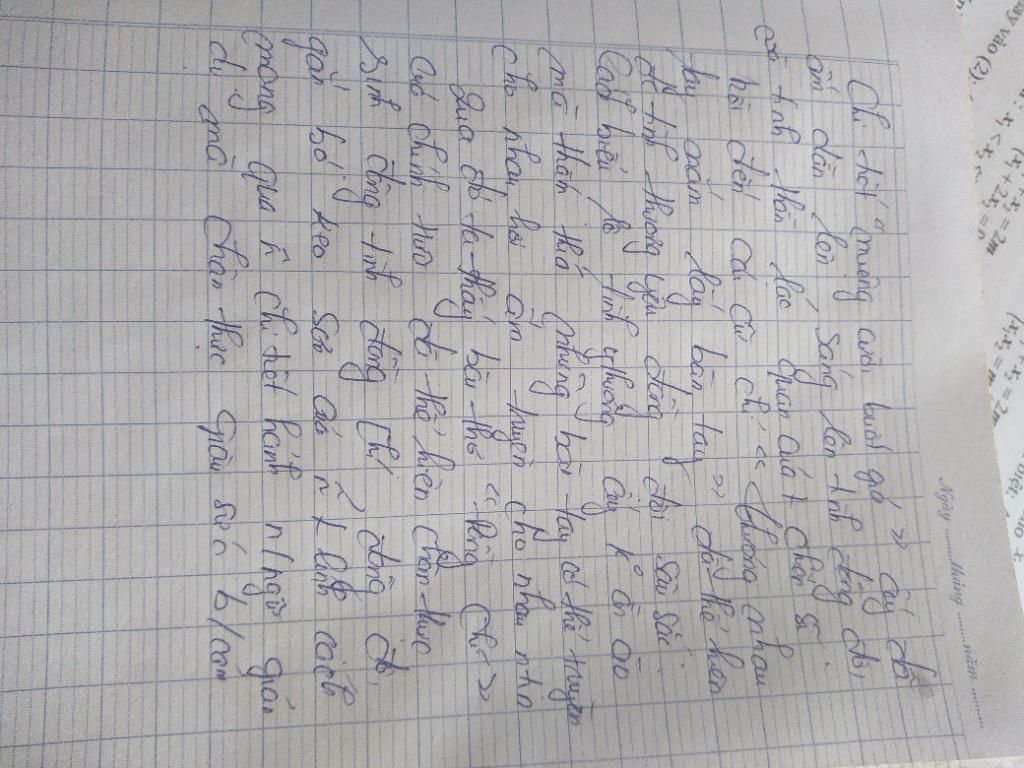 Ngày ........ tháng ........ năm ........
Chi tiết "miệng cười buốt giá" ấy đã
ấm dần lên, sáng lên tình đồng đội,
và tinh thần lạc quan của chiến sĩ.
hồi đến cái cử chỉ "thương nhau
tay nắm lấy bàn tay" đã thể hiện
đc tình thương yêu đồng đội sâu sắc.
Cách biểu lộ tình thương ấy k ồn ào
mà thấm thía. những bàn tay có thể truyền
cho nhau hơi ấm truyền cho nhau
Qua đó ta thấy bài thơ "Đồng Chí"
của Chính Hữu đã thể hiện chân thực
sinh động tình đồng chí đồng đội
gắn bó keo sơn của n~ lính cách
mạng qua n~ chi tiết hình n/ngữ giản
dị mà chân thực giàu sức b/cảm
ay vào (2)